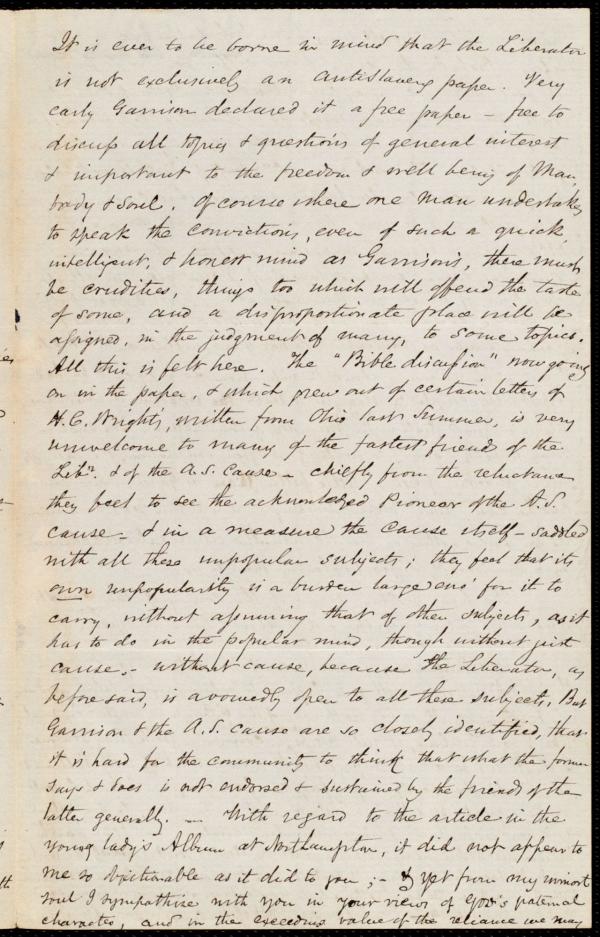 It is ever to be borne in mind that the Liberator
is not exclusively an antislavery paper. Very
early Garrison declared it a free paper – free to
discuss all topics & questions of general interest
& important to the freedom & well being of Man,
body & soul. Of course where one man undertakes
to speak the convictions, even of such a quick,
intelligent, & honest mind as Garrison's, there must
be crudities, things too which will offend the taste
of some, and a disproportionate place will be
assigned, in the judgment of many, to some topics.
All this is felt here. The "Bible discussion" now going
on in the paper, & which grew out of certain letters of
H. C. Wright's, written from Ohio last Summer, is very
unwelcome to many of the fastest friends of the
Libr. & of the A. S. Cause – chiefly from the reluctance
they feel to see the acknowledged Pioneer of the A. S.
cause – & in a measure the cause itself – saddled
with all these unpopular subjects; they feel that its
own unpopularity is a burden large eno' for it to
carry, without assuming that of other subjects, as it
has to do in the popular mind, though without just
cause, – without cause, because the Liberator, as
before said, is avowedly open to all these subjects. But
Garrison & the A. S. cause are so closely identified, that
it is hard for the community to think that what the former
says & does is not endorsed & sustained by the friends of the
latter generally. – With regard to the article in the
Young lady's Album at Northampton, it did not appear to
me so objectionable as it did to you; – & yet from my inmost
soul I sympathise with you in your views of God's paternal
character, and in the exceeding value of the reliance we may